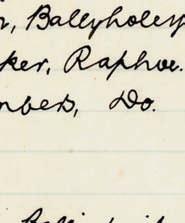 r, Ballyholey
ker, Raphoe.
mbers, Do.